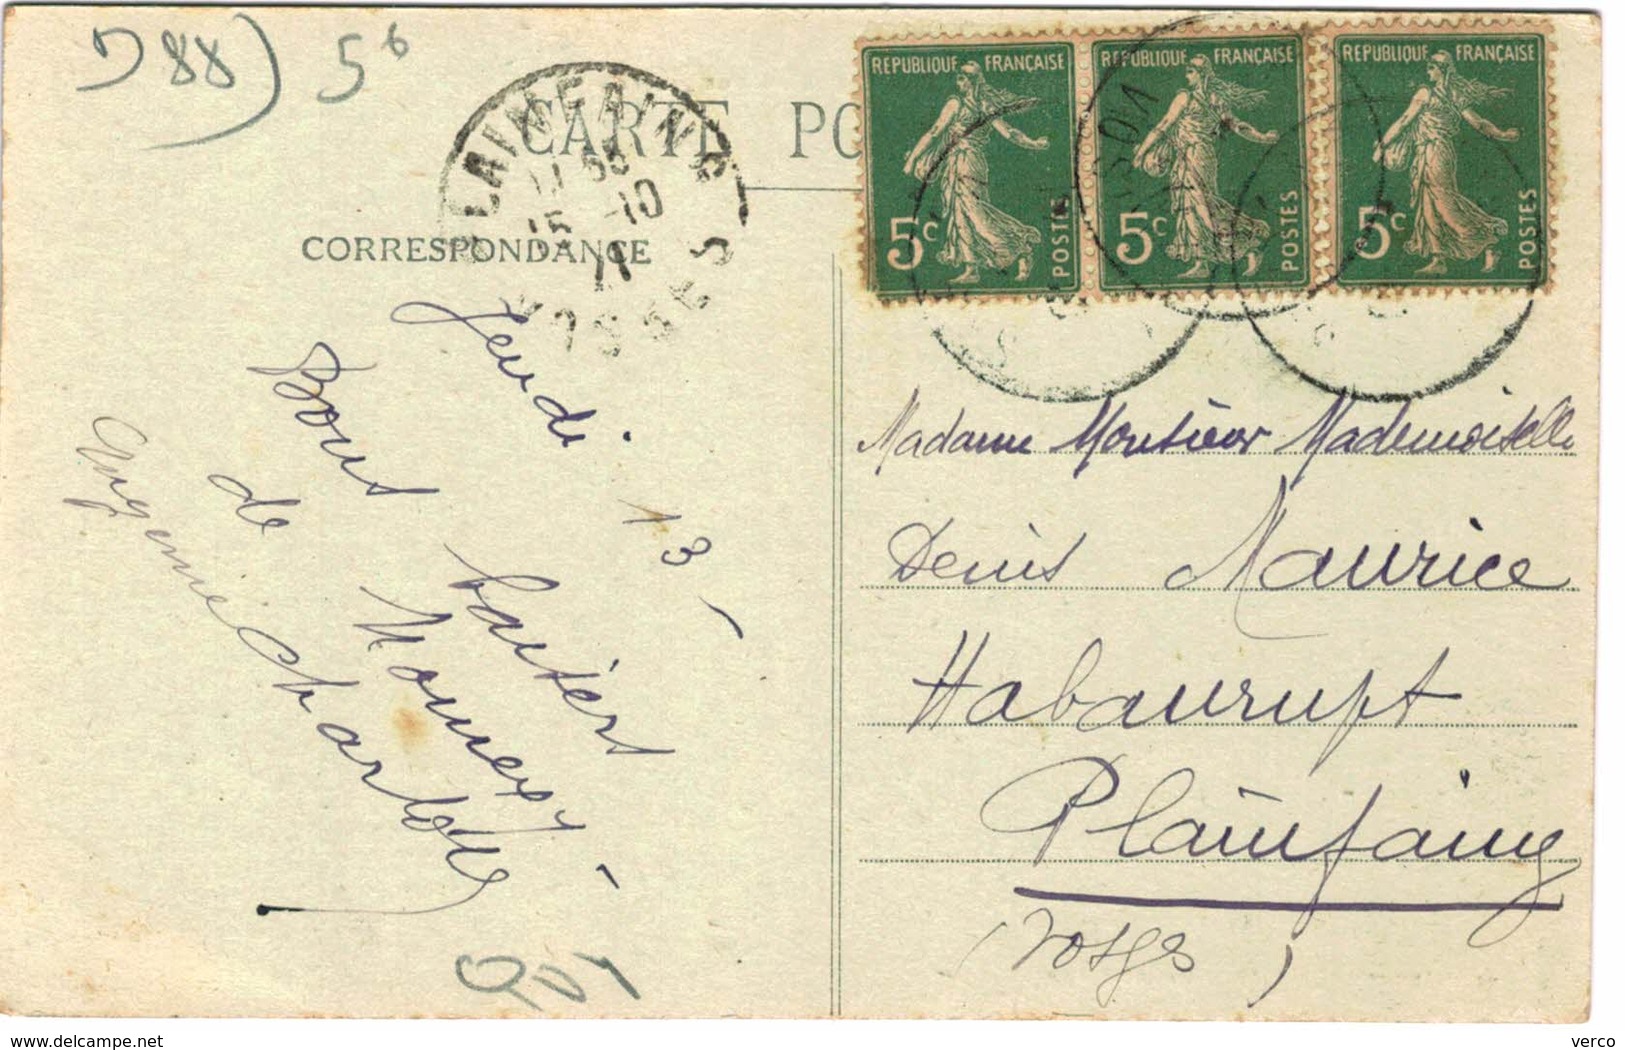 D 88) 5 6
CARTE PO
PLAINFAING
15 -10
11
VOSGES
REPUBLIQUE FRANÇAISE
5c POSTES
REPUBLIQUE FRANÇAISE
5c POSTES
REPUBLIQUE FRANÇAISE
5c POSTES
VOSG
CORRESPONDANCE
Jeudi 13 -
Bons baisers
de
Charlotte
Madame Monsieur Mademoiselle
Denis Maurice
Habaurupt
Plainfaing
(Vosges)
delcampe.net
verco